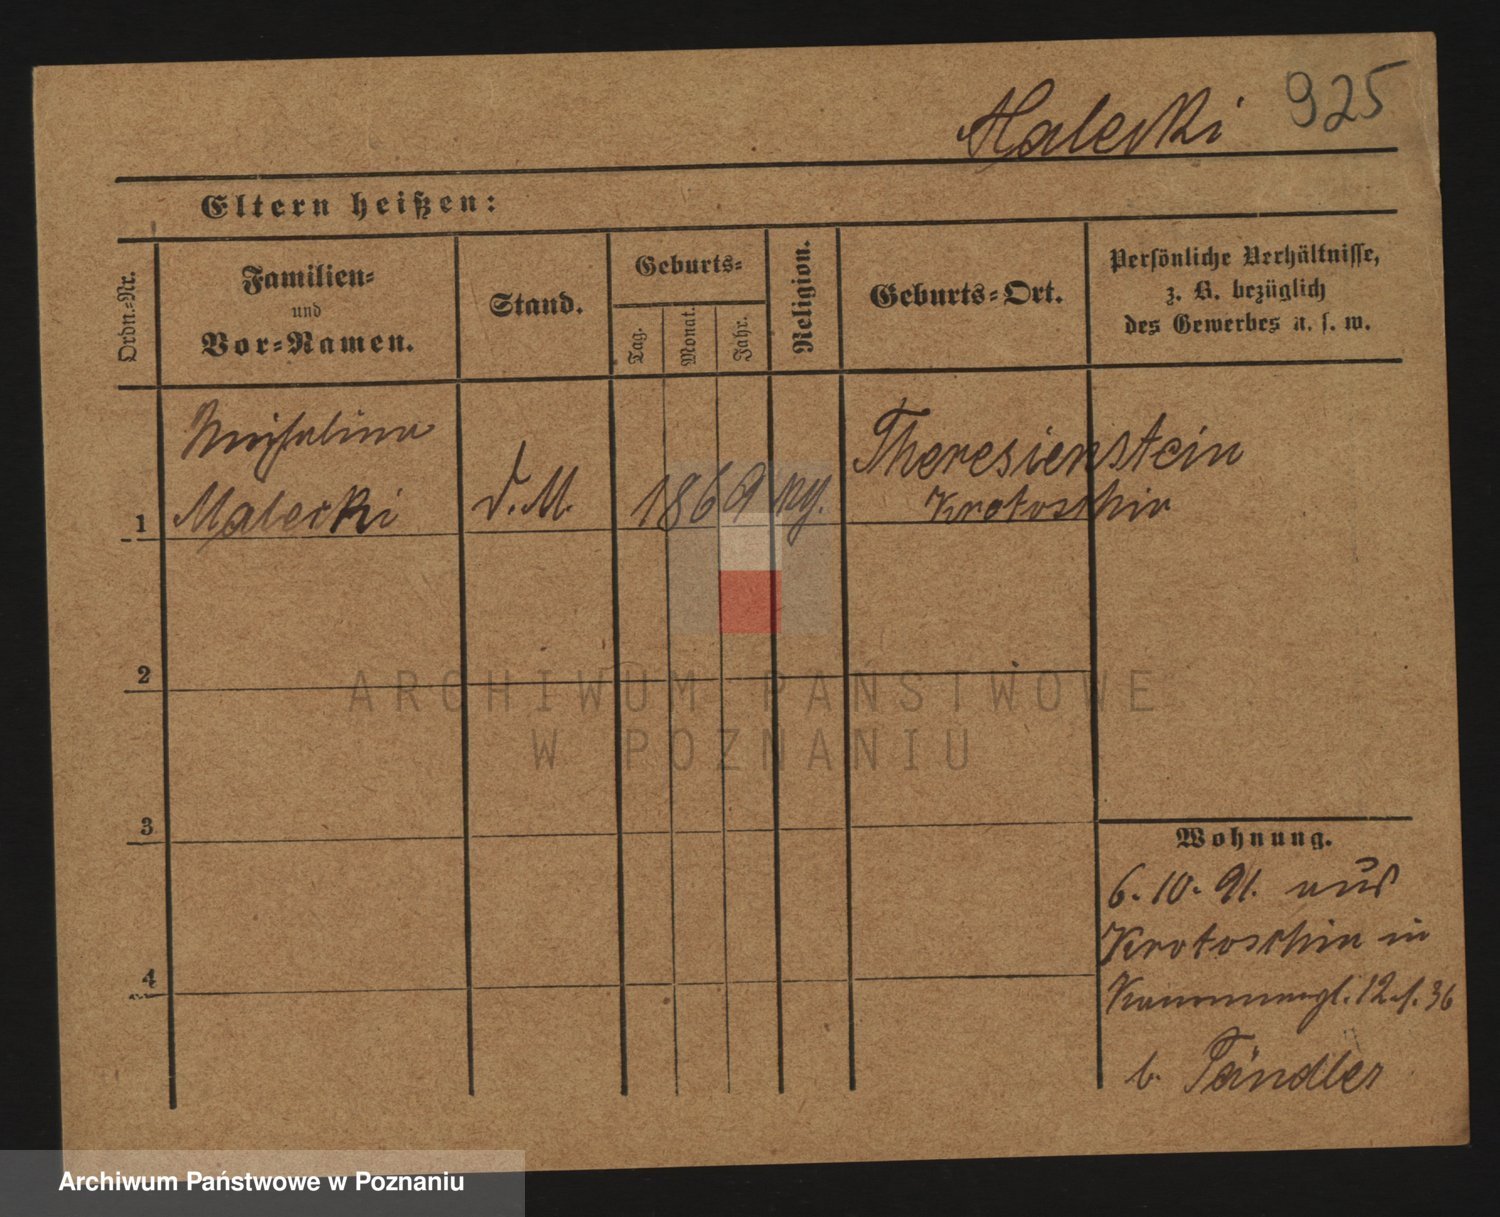 Malecki 925
Eltern heißen:
Ordn.-Nr.
Familien-
und
Vor-Namen.
Stand.
Geburts-
Tag.
Monat.
Jahr.
Religion.
Geburts-Ort.
Persönliche Verhältnisse,
z. B. bezüglich
des Gewerbes u. s. w.
Michalina
Malecki
d. M.
1869
Theresienstein
Krotoschin
1
2
3
4
Wohnung.
6. 10. 91. aus
Krotoschin in
36
b. Tändler
ARCHIWUM PAŃSTWOWE
W POZNANIU
Archiwum Państwowe w Poznaniu